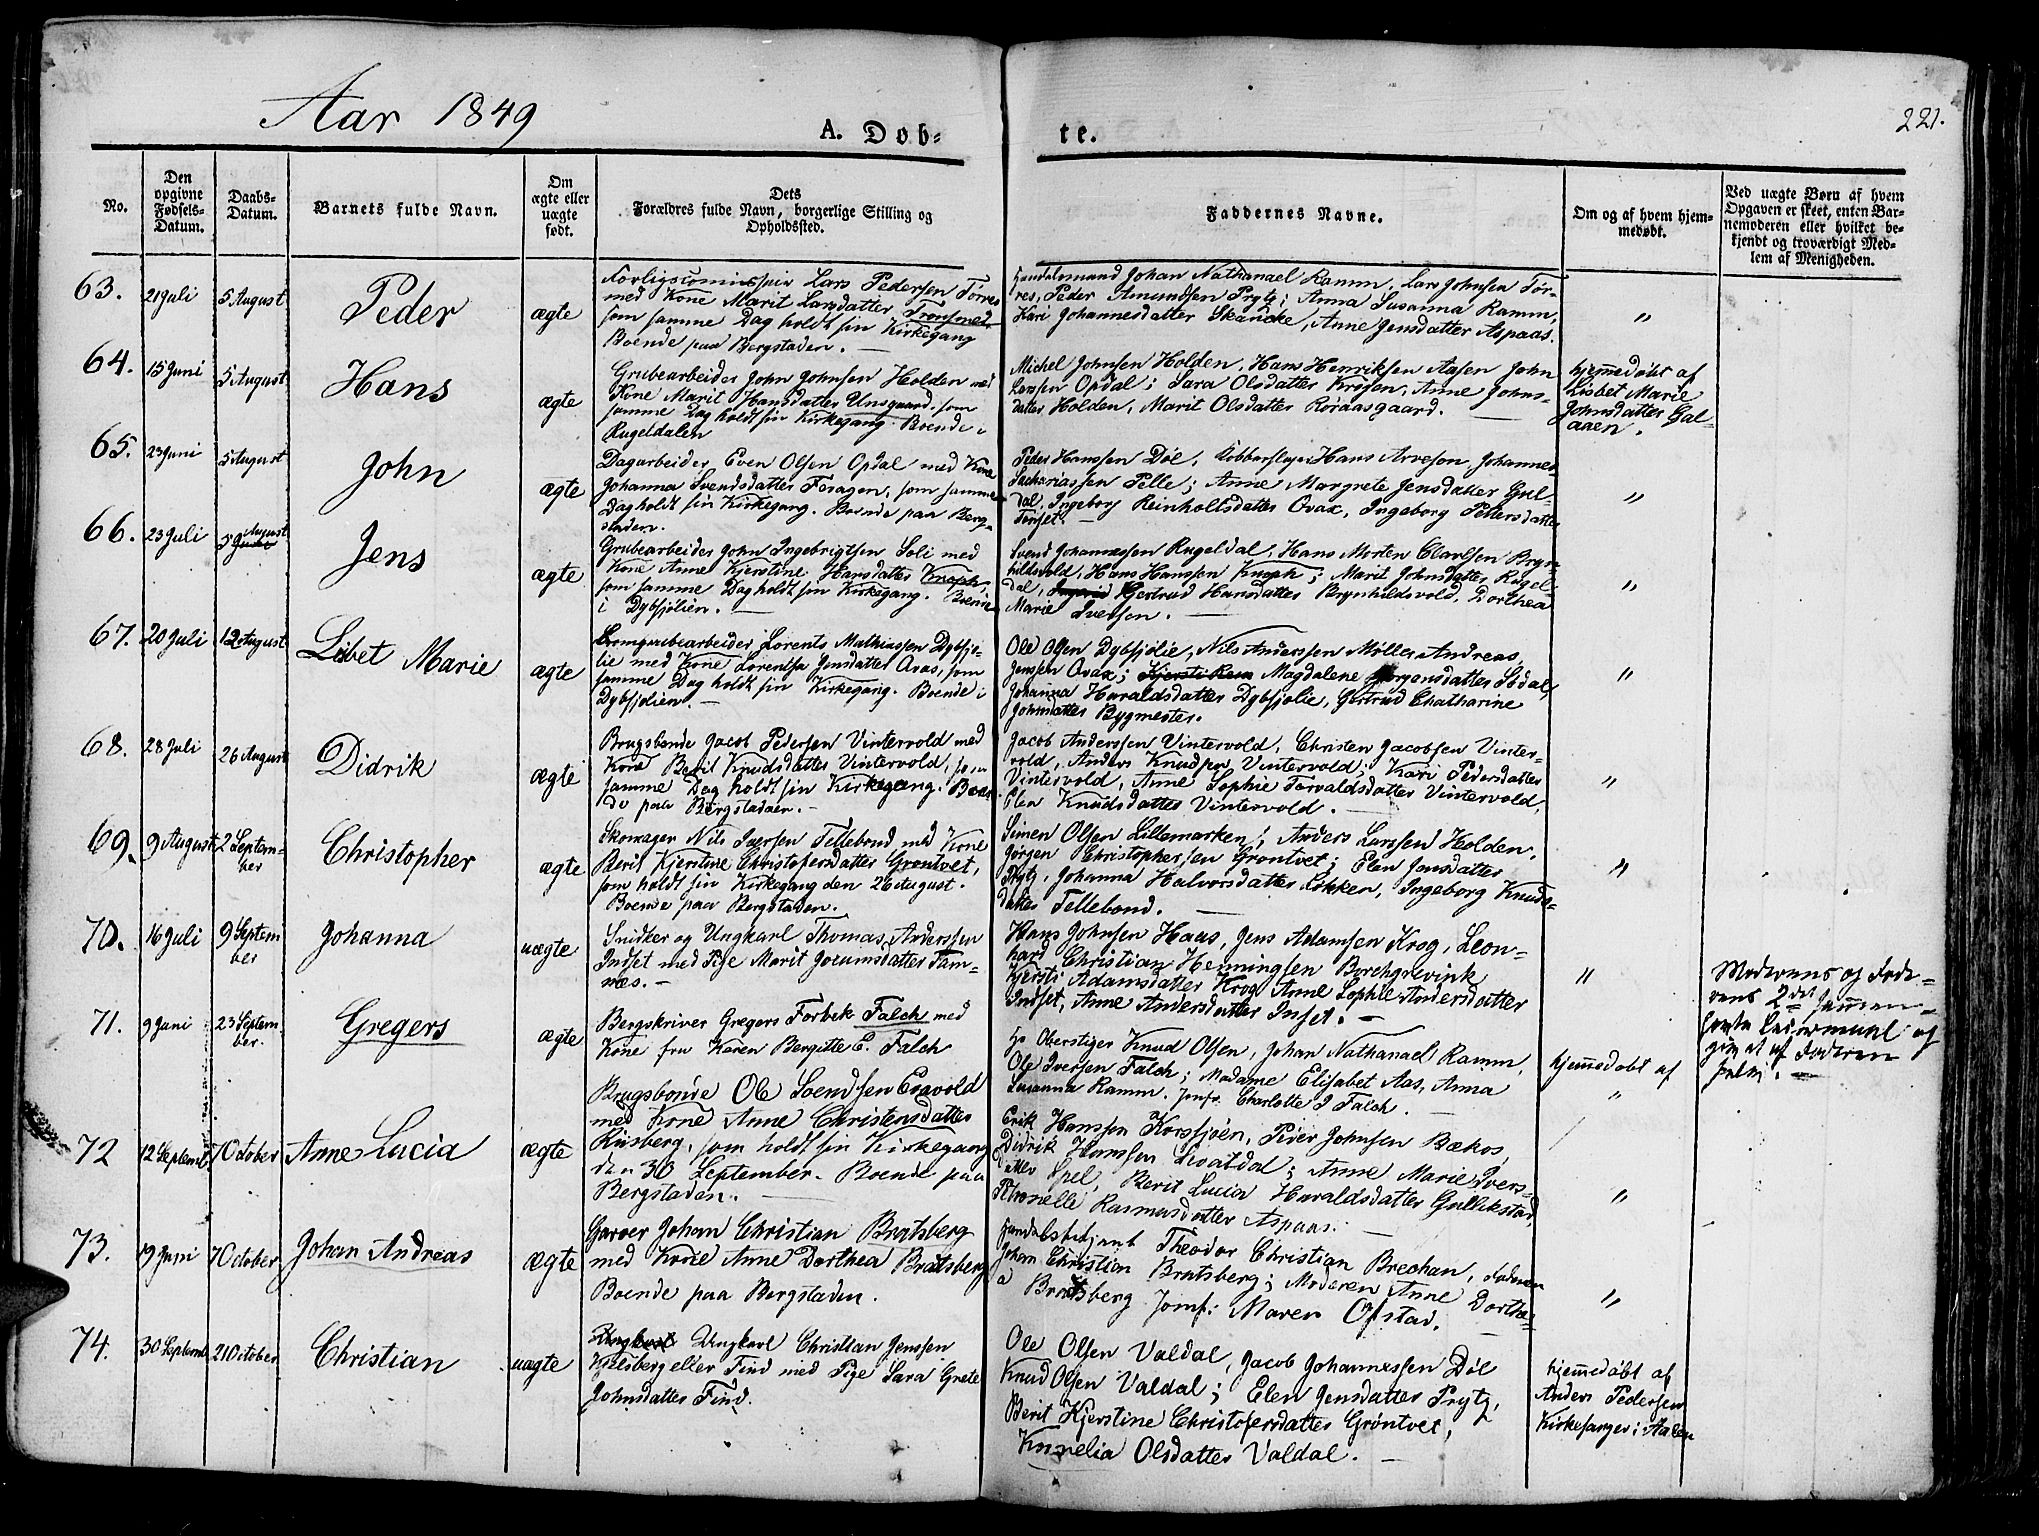 Aar 1849
A. Døb-
te.
221.
No.
Den
opgivne
Fødsels-
Datum.
Daabs-
Datum.
Barnets fulde Navn.
Om
ægte eller
uægte
født.
Dets
Forældres fulde Navn, borgerlige Stilling og
Opholdssted.
Faddernes Navne.
Om og af hvem hjem-
medøbt.
Ved uægte Børn af hvem
Opgaven er skeet, enten Bar-
nemoderen eller hvilket be-
kjendt og troværdigt Med-
lem af Menigheden.
63.
21 Juli
5 August
Peder
ægte
Lars Pedersen Torres
med Kone Marit Larsdatter Tronsmed
som samme Dag holdt sin Kirkegang
Boende paa Bergstaden. —
Handelsmand Johan Nathanael Ramm, Lars Johnsen Tor-
res, Peder Amundsen Prytz; Anna Susanna Ramm,
Kari Johannesdatter Skancke, Anne Jensdatter Aspaas.
"
64.
15 Juni
5 August
Hans
ægte
Grubearbeider John Johnsen Holden med
Kone Marit Hansdatter Unsgaard, som
samme Dag holdt sin Kirkegang. Boende i
Rugeldalen
Michel Johnsen Holden, Hans Henriksen Aasen John
Larssen Opdal; Sara Olsdatter Krogen, Anne Johns-
datter Holden, Marit Olsdatter Røraasgaard. —
hjemmedøbt af
Lisbet Marie
Johnsdatter Gal-
aaen.
65.
23 Juni
5 August
John
ægte
Dagarbeider Even Olsen Opdal med Kone
Johanna Svendsdatter Foragen, som samme
Dag holdt sin Kirkegang. Boende paa Berg-
staden.
Peder Hanssen Døl, Kobberslager Hans Arvesøn, Johannes
Sachariassen Pelle; Anne Margrete Jensdatter Gul-
dal, Ingeborg Reinholtsdatter Ovax, Ingeborg Pettersdatter
Tørset. —
"
66.
23 Juli
5 August
Jens
ægte
Grubearbeider John Ingebrigtsen Soli med
Kone Anne Kjerstine Hansdatter Knoph
som samme Dag holdt sin Kirkegang. Boende
i Dybsjølien. —
Svend Johannessen Rugeldal, Hans Morten Olavlsen Bryn-
hildsvold, Hans Hanssen Knoph; Marit Johnsdatter Rugel-
dal, Gertrud Hansdatter Brynhildsvold, Dorthea
Marie Iversen. —
"
67.
20 Juli
12 August
Lisbet Marie
ægte
Lorents Mathiassen Dybsjø-
lie med Kone Lorentse Jensdatter Ovas, som
samme Dag holdt sin Kirkegang. Boende i
Dybsjølien. —
Ole Olsen Dybsjølie, Nils Anderssen Møller Andreas
Jenssen Ovax; Magdalene Jørgensdatter Sødal,
Johanna Haraldsdatter Dybsjølie, Gertrud Chatharine
Johnsdatter Bygmester.
"
68.
28 Juli
26 August
Didrik
ægte
Brugsbonde Jacob Pedersen Vintervold med
Kone Berit Knudsdatter Vintervold, som
samme Dag holdt sin Kirkegang. Boen-
de paa Bergstaden. —
Jacob Anderssen Vintervold, Christen Jacobsen Vinter-
vold, Anders Knudsen Vintervold; Kari Pedersdatter
Vintervold, Anne Sophie Torvaldsdatter Vintervold,
Elen Knudsdatter Vintervold. —
"
69.
9 August
2 Septem-
ber
Christopher
ægte
Skomager Nils Iversen Tellebond med Kone
Berit Kjerstine Christofersdatter Grøntvet,
som holdt sin Kirkegang den 26 August.
Boende paa Bergstaden.
Simen Olsen Lillemarken; Anders Larssen Holden,
Jørgen Christophersen Grøntvet; Elen Jensdatter
Prytz, Johanna Halvorsdatter Løkken, Ingeborg Knuds-
datter Tellebond. —
"
70.
16 Juli
9 Septem
ber
Johanna
uægte
Snidker og Ungkarl Thomas Anderssen
Indset med Pige Marit Jorumsdatter Tam-
næs. —
Hans Johnsen Haas, Jens Adamsen Krog, Leon-
hard Christian Henningsen Borchgrevink
Kjersti Adamsdatter Krog Anne Sophie Andersdatter
Indset, Anne Andersdatter Inset. —
"
Moderens og Fade-
rens 2det
af Faderen
71.
9 Juni
23 Septem
ber.
Gregers
ægte
Bergskriver Gregers Forbek Falch med
Kone fru Karen Bergitte E. Falch
Hr Oberstiger Knud Olsen, Johan Nathanael Ramm,
Ole Iversen Falch; Madame Elisabet Aas, Anna
Susanna Ramm, Jomfr. Charlotte I Falch. —
hjemmedøbt af
"
72
12 Septemb
7 October
Anne Lucia
ægte
Brugsbonde Ole Svendsen Engvold
med Kone Anne Christensdatter
Riisberg, som holdt sin Kirkegang
den 30 September. Boende paa
Bergstaden. —
Erik Hanssen Korssjøen, Peder Johnsen Bækos,
Didrik Hanssen Svatdal; Anne Marie Ivers-
datter Spel, Berit Lucia Haraldsdatter Gullikstad
Petronelle Rasmusdatter Aspaas. —
"
73.
9 Juni
7 October
Johan Andreas
ægte
Garver Johan Christian Bratsberg
med Kone Anne Dorthea Bratsberg
Boende paa Bergstaden.
Handelsbetjent Theodor Christian Brechan, Faderen
Johan Christian Bratsberg; Moderen Anne Dorthe-
a Bratsberg Jomf: Maren Opstad. —
"
74.
30 Septemb
21 October
Christian
uægte
Ungkarl Christian Jenssen
Kjelsberg eller Find med Pige Sara Grete
Johnsdatter Find.
Ole Olsen Valdal, Jacob Johannessen Døl
Knud Olsen Valdal; Elen Jensdatter Prytz,
Berit Kjerstine Christofersdatter Grøntvet,
Karnelia Olsdatter Valdal. —
hjemmedøbt af
Anders Pedersen
Kirkesanger i Aalen